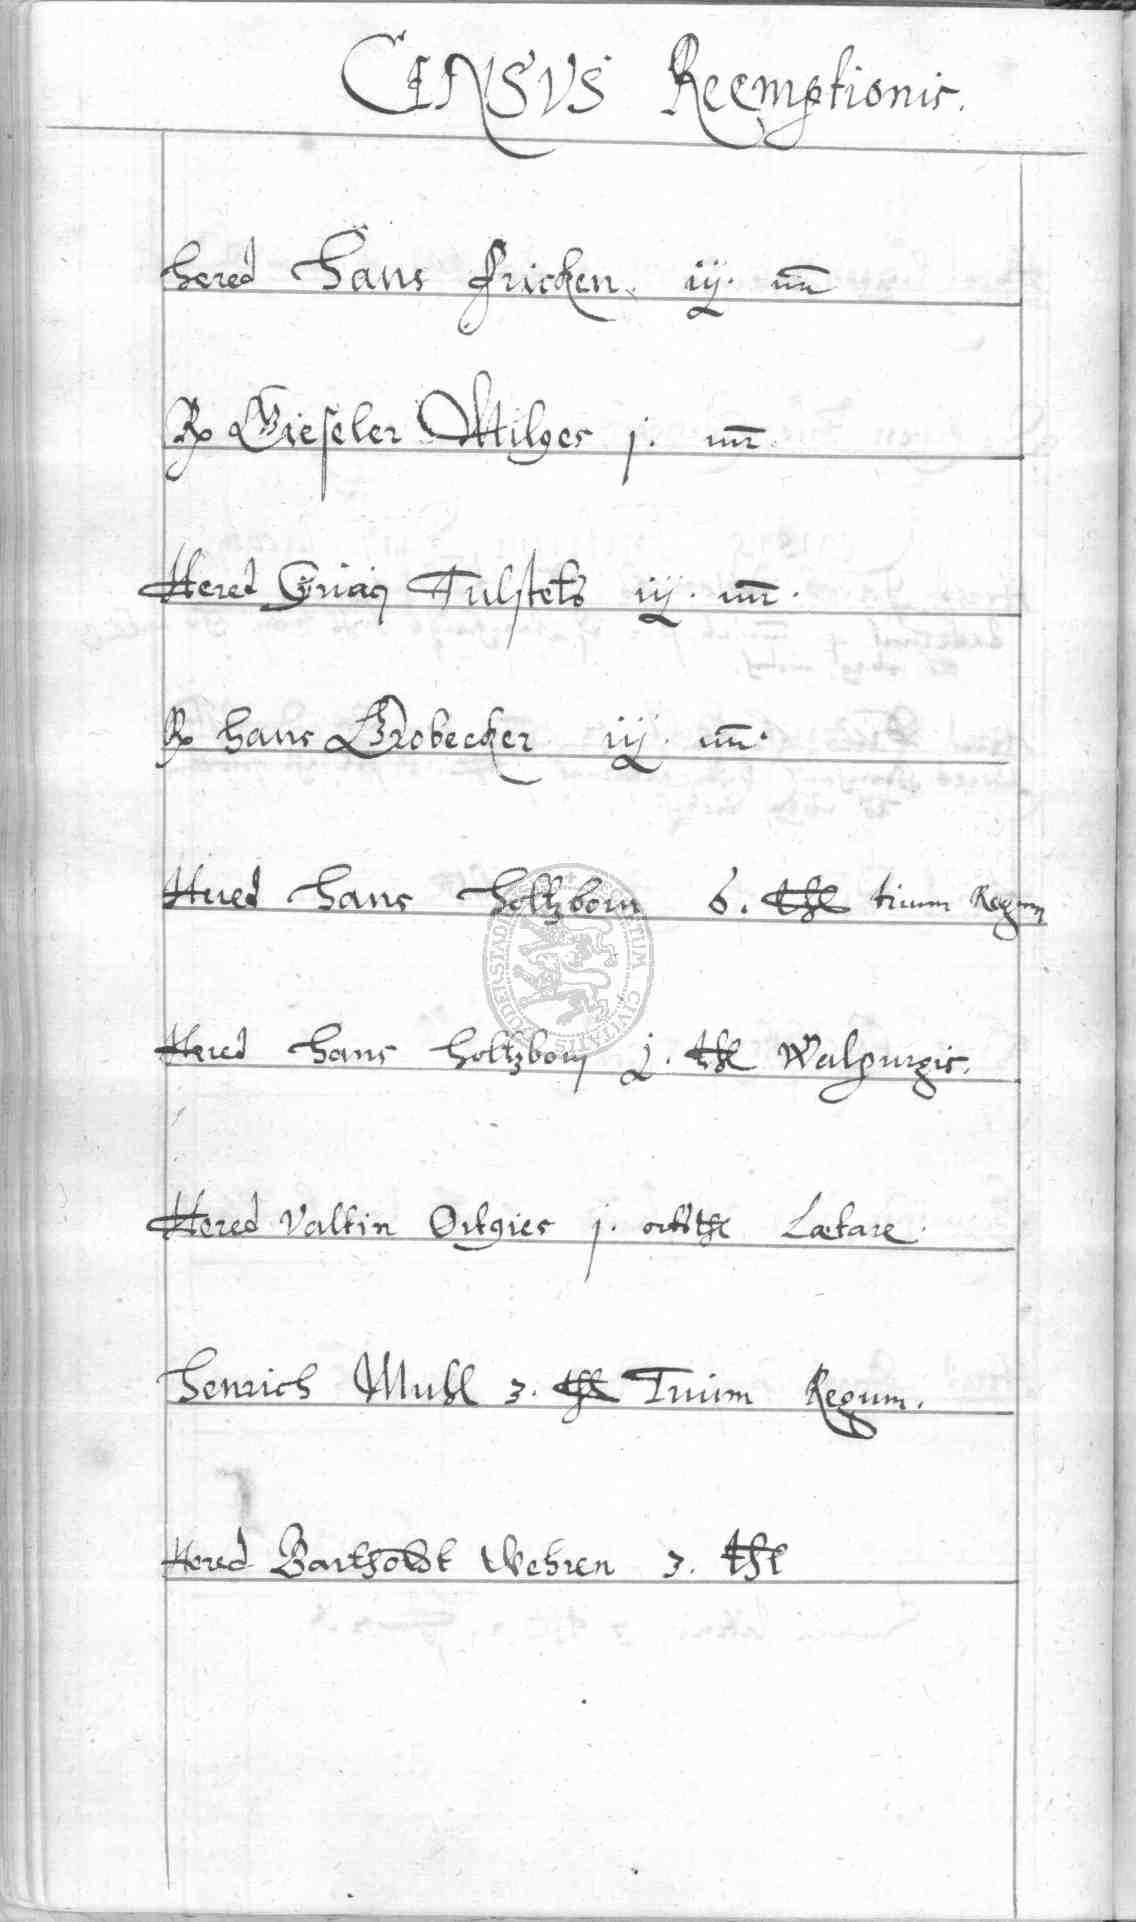 CENSVS Reemptionis.
hered Hans Fricken iij. mr
Rp Gieseler Milges j. mr
Hered Ciriaci Tulstets iij. mr.
Rp hans Brobecker iij. mr.
Hered Hans Holtzborn 6. thl trium Regum
Hered Hans holtzborn j. thl Walpurgis.
Hered Valtin Ortgies j. ortsthl Lætare.
Henrich Muhl 3. thl Trium Regum.
Hered Barthold Wehren 3. thl